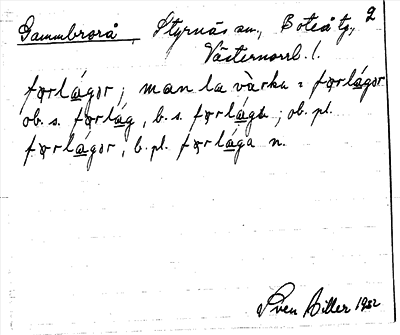 Dammbrorå, Styrnäs sn., Boteå tg., 2
Västernorrl. l.
førlågør; man la värka = førlågør
ob. s. førlåg, b. s. førlåga; ob. pl.
førlågør, b. pl. førlåga n.
Sven Hiller 1932